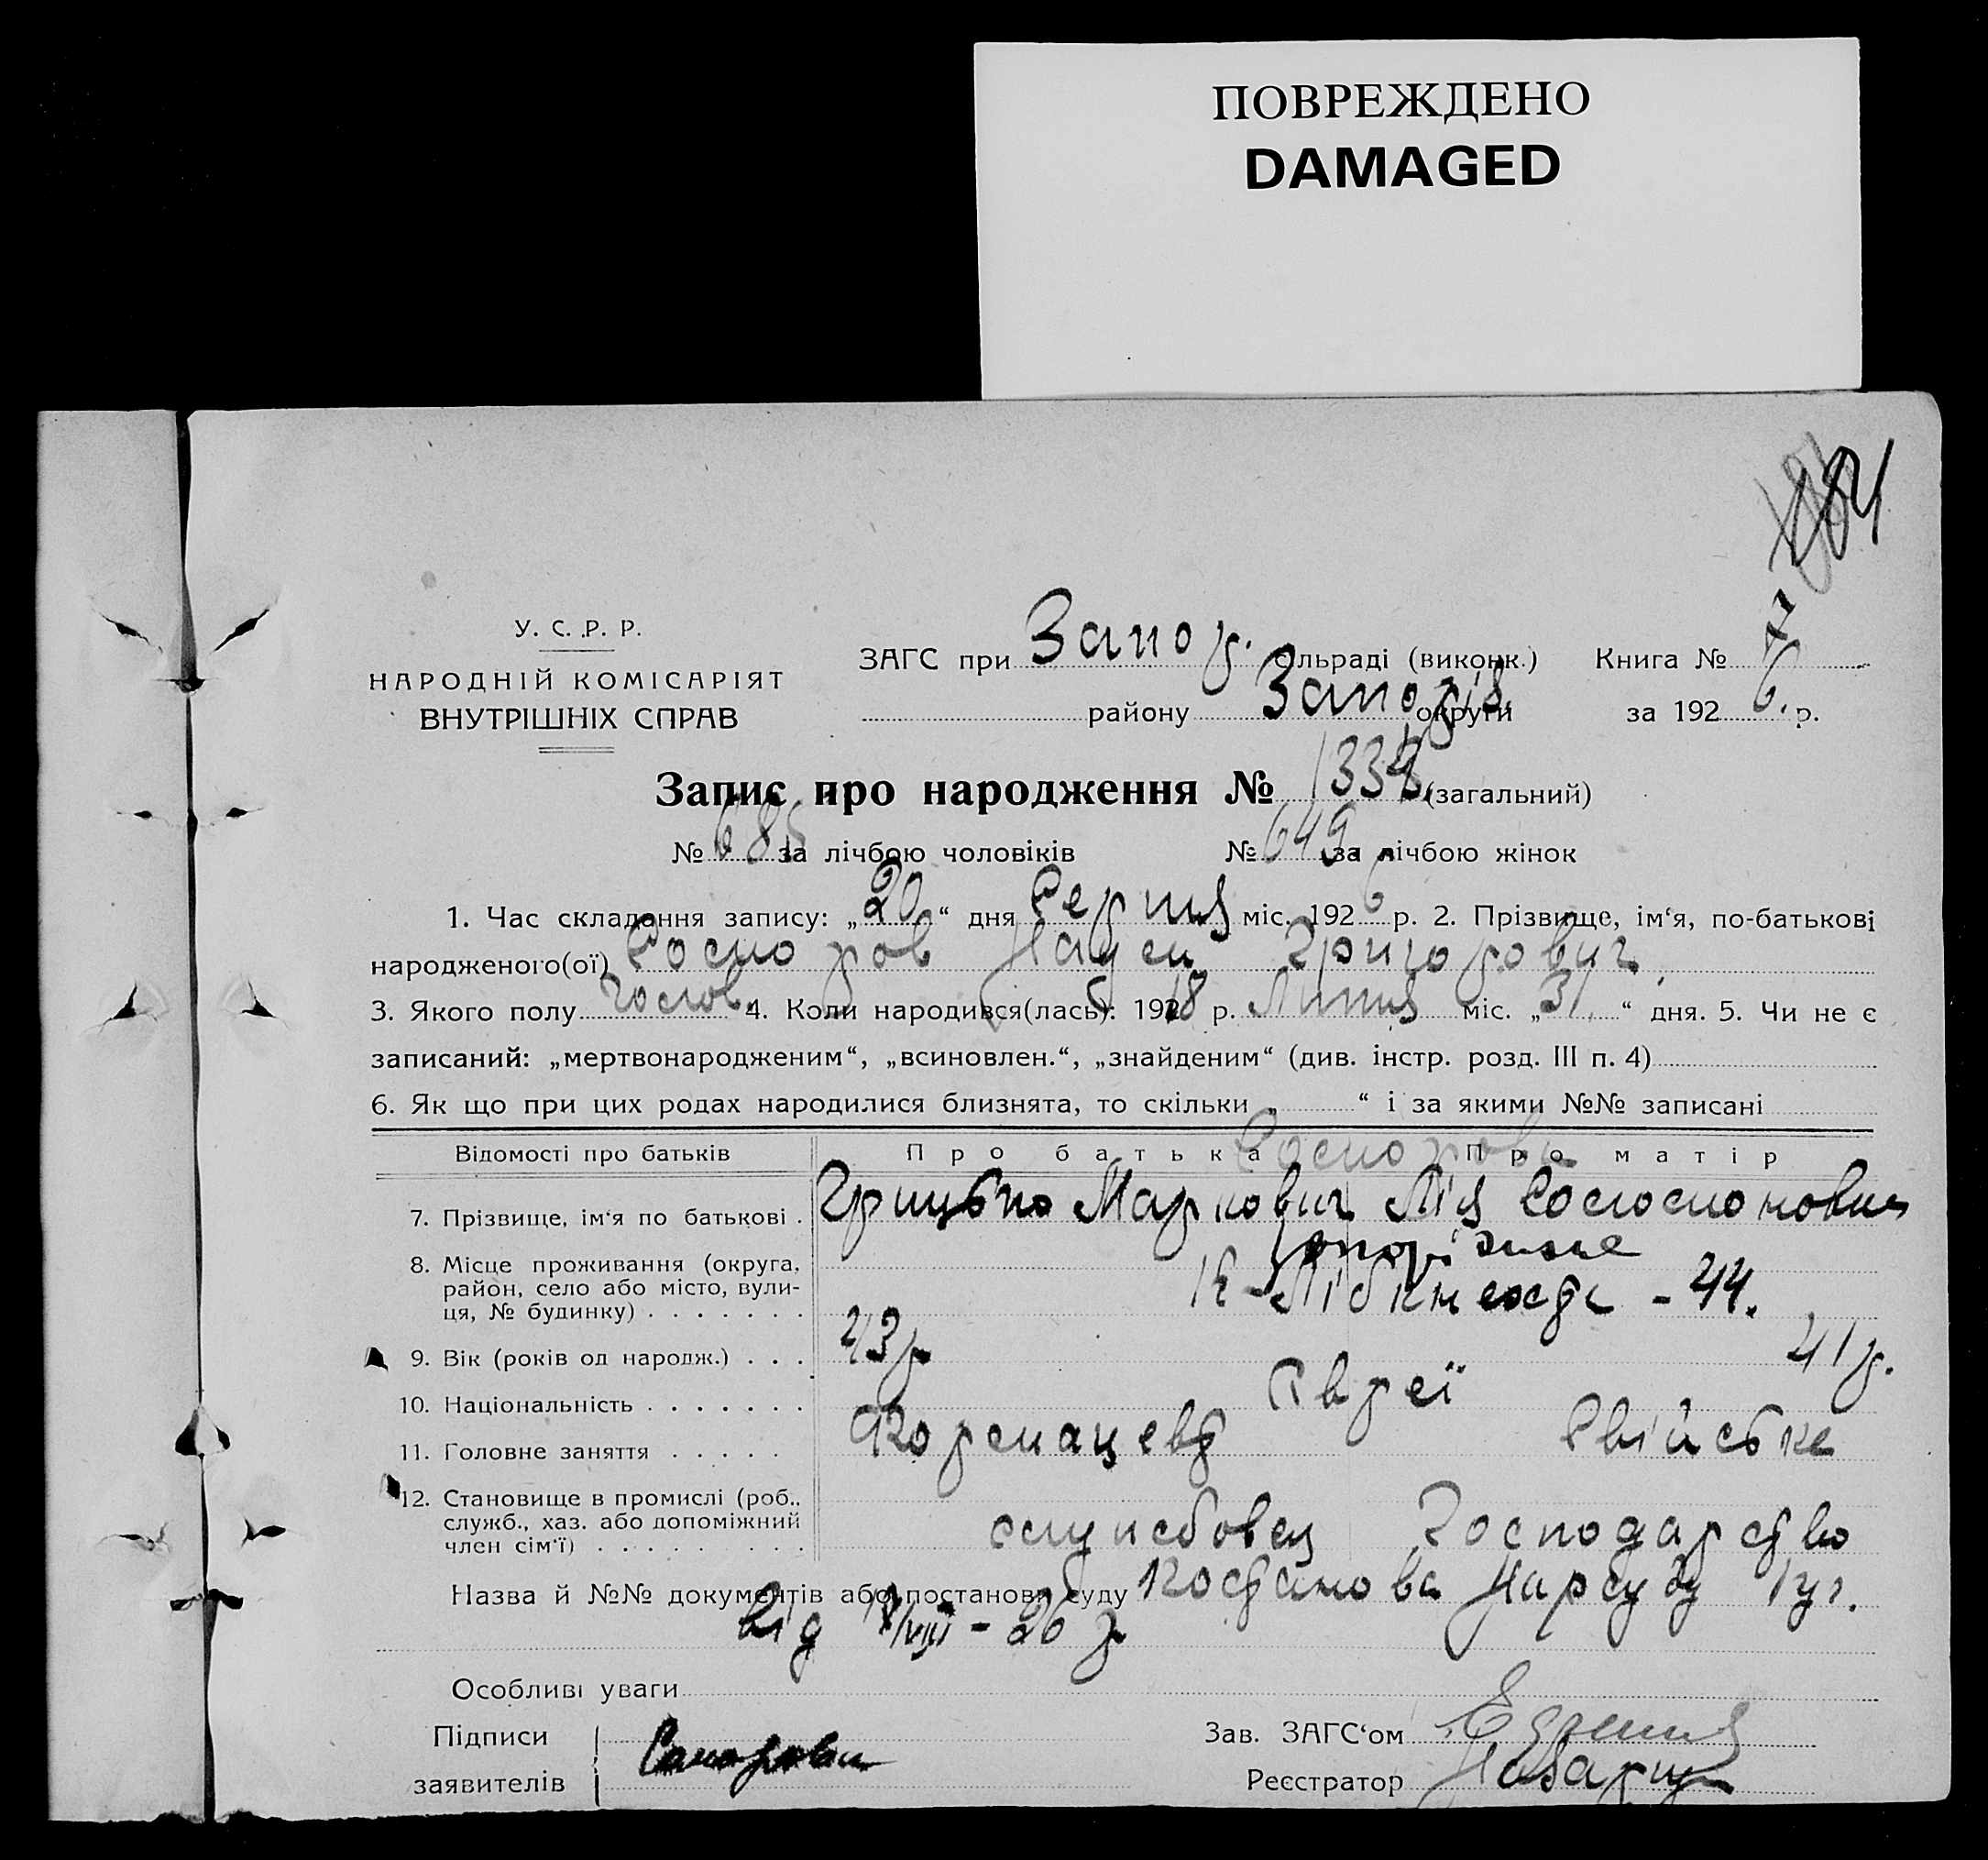 ПОВРЕЖДЕНО
DAMAGED
У. С. Р. Р.
НАРОДНІЙ КОМІСАРІЯТ
ВНУТРІШНІХ СПРАВ
ЗАГС при Запор. ільраді (виконк.) Книга № 7
району Запоріз. округи за 192 6. р.
Запис про народження № 133 (загальний)
№ 685 за лічбою чоловіків № 649 за лічбою жінок
1. Час складання запису: „20“ дня Серпня міс. 192 6 р. 2. Прізвище, ім‘я, по-батькові
народженого(ої) Григорович
3. Якого полу 4. Коли народився(лась): 19 18 р. Липня міс. „31“ дня. 5. Чи не є
записаний: „мертвонародженим“, „всиновлен.“, „знайденим“ (див. інстр. розд. III п. 4)
6. Як що при цих родах народилися близнята, то скільки „ “ і за якими №№ записані
Відомості про батьків Про батька Про матір
7. Прізвище, ім‘я по батькові . Маркович Лія
8. Місце проживання (округа, район, село або місто, вулиця, № будинку) . . . . . . . К-Лібкнехта - 44.
9. Вік (років од народж.) . . . 43 р 41 р.
10. Національність . . . . . . . Євреї
11. Головне заняття . . . . . Фармацевт Свійське
12. Становище в промислі (роб., служб., хаз. або допоміжний член сім‘ї) . . . . . . . . . службовец Господарство
Назва й №№ документів або постанови суду Постанова Нарсуду
від /VIII - 26 р
Особливі уваги
Підписи
заявителів
Зав. ЗАГС‘ом
Реєстратор